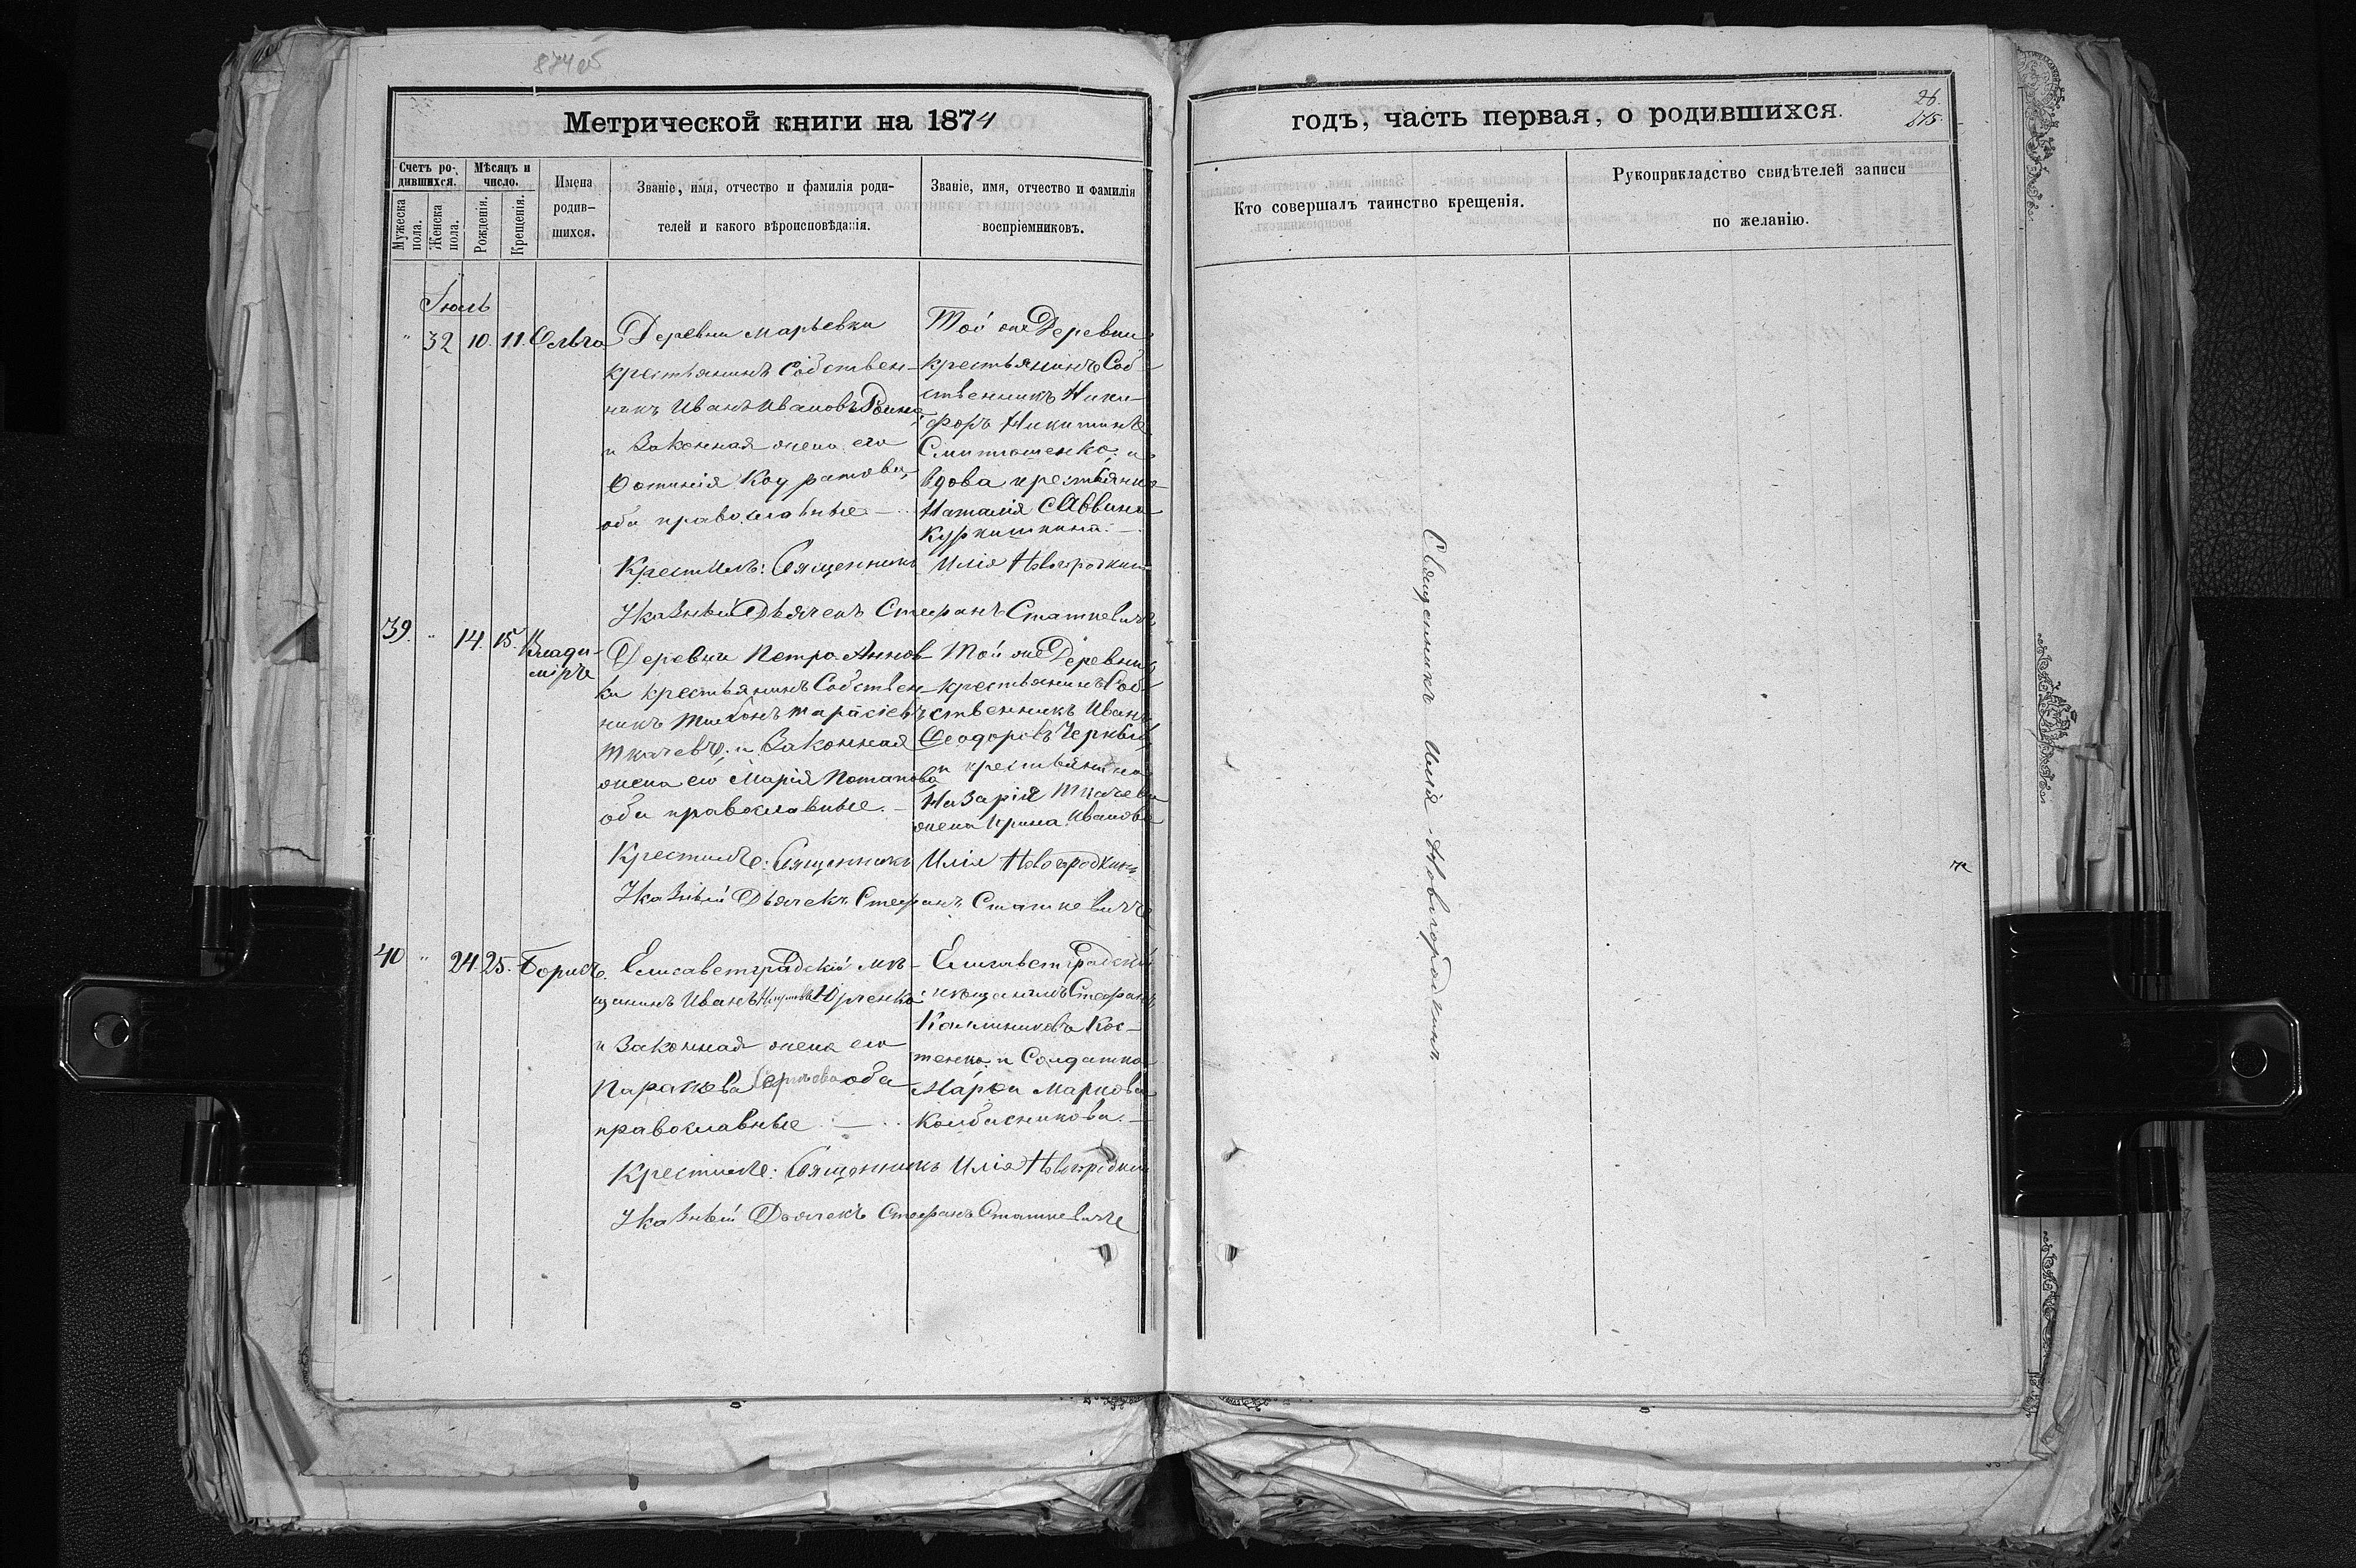 Метрической книги на 1874
годъ, часть первая, о родившихся.
26.
Счетъ ро-
дившихся.
Мужеска
пола.
Женска
пола.
Мѣсяцъ и
число.
Рожденія.
Крещенія.
Имена
родив-
шихся.
Званіе, имя, отчество и фамилія роди-
телей и какого вѣроисповѣданія.
Званіе, имя, отчество и фамилія
воспріемниковъ.
Кто совершалъ таинство крещенія.
Рукоприкладство свидѣтелей записи
по желанію.
Іюль
" 32 10. 11. Ольга
Деревни Марьевки
крестьянинъ собствен-
никъ Иванъ Ивановъ
и Законная жена его
Фотинія
оба православные
Той же Деревни
крестьянинъ Соб-
ственникъ Ники-
форъ Никитинъ
и
вдова крестьянка
Наталія Саввина
Крестилъ: Священникъ Илія Новгородкинъ
Указный Дьячекъ Стефанъ Статкевичъ
39. " 14. 15. Влади-
міръ
Деревни Петро-Аннов-
ки крестьянинъ Собствен-
никъ Тихонъ Тарасіевъ
Ткачевъ, и Законная
жена его Марія Потапова
оба православные.
Той же Деревни
крестьянинъ Соб-
ственникъ Иванъ
Ѳеодоровъ Черный,
и крестьянина
Назарія Ткачева
жена Ирина Иванова
Крестилъ: Священникъ Илія Новгородкинъ
Указный Дьячекъ Стефанъ Статкевичъ
40 " 24. 25. Борисъ.
Елисаветградскій мѣ-
щанинъ Иванъ Юрченко
и Законная жена его
Параскева Сергѣева оба
православные
Елисаветградскій
мѣщанинъ Стефанъ
Калинниковъ Кос-
тенко, и Солдатка
Марѳа Маркова
Колбасникова.
Крестилъ: Священникъ Илія Новгородкинъ
Указный Дьячекъ Стефанъ Статкевичъ
Священникъ Илія Новгородкинъ